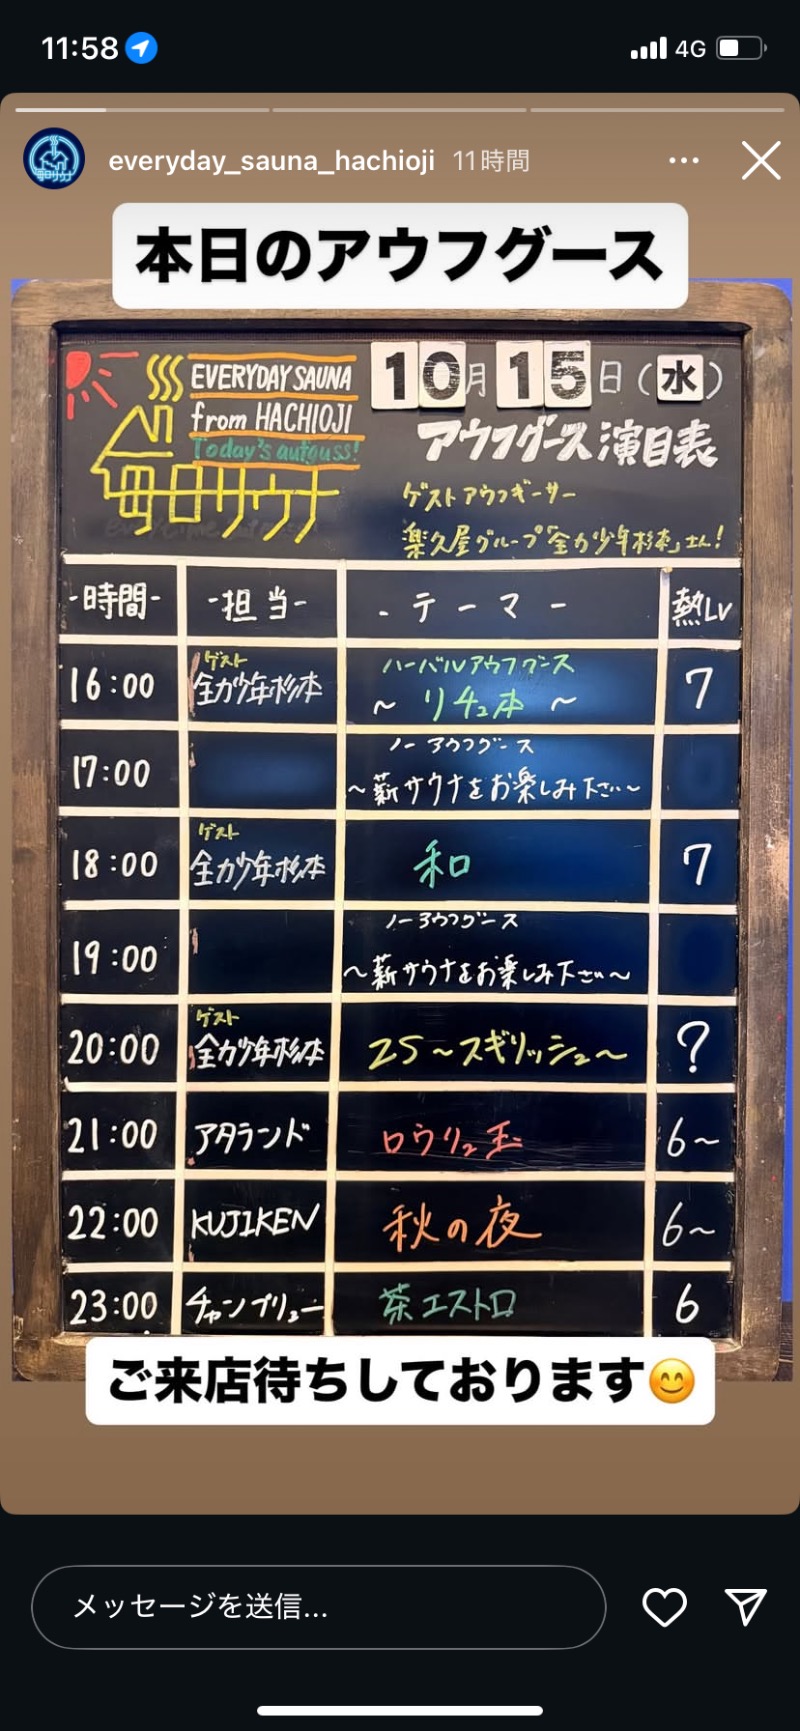 11:58
4G
everyday_sauna_hachioji 11時間
毎日サウナ
本日のアウフグース
EVERYDAY SAUNA
from HACHIOJI
Today's aufguss!
毎日サウナ
10月15日(水)
アウフグース演目表
ゲストアウフギーサー
楽久屋グループ「全力少年杉本」さん!
-時間- -担当- -テーマ- 熱Lv
16:00 ゲスト 全力少年杉本 ハーバルアウフグース ~リチュ本~ 7
17:00 ノーアウフグース ~薪サウナをお楽しみ下さい~
18:00 ゲスト 全力少年杉本 和 7
19:00 ノーアウフグース ~薪サウナをお楽しみ下さい~
20:00 ゲスト 全力少年杉本 2S~スギリッシュ~ ?
21:00 アタランド ロウリュ玉 6~
22:00 KUJIKEN 秋の夜 6~
23:00 チャンブリュー 茶エストロ 6
ご来店待ちしております😊
メッセージを送信...